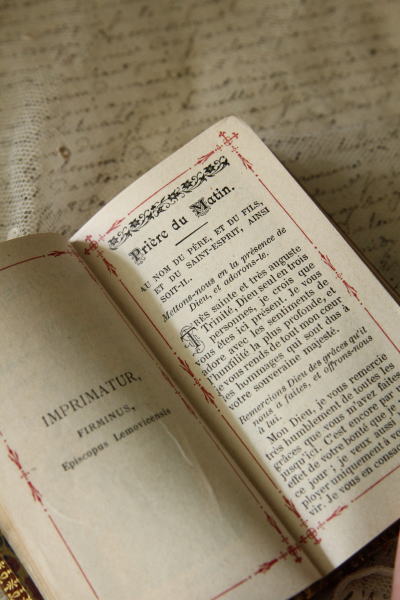 IMPRIMATUR,
FIRMINUS,
Episcopus Lemovicensis
Prière du Matin.
AU NOM DU PÈRE, ET DU FILS,
ET DU SAINT-ESPRIT, AINSI
SOIT-IL.
Mettons-nous en la présence de
Dieu, et adorons-le.
Très sainte et très auguste
Trinité, Dieu seul en trois
personnes, je crois que
vous êtes ici présent. Je vous
adore avec les sentiments de
l'humilité la plus profonde, et
je vous rends de tout mon cœur
les hommages qui sont dus à
votre souveraine majesté.
Remercions Dieu des grâces qu'il
nous a faites, et offrons-nous
à lui.
Mon Dieu, je vous remercie
très humblement de toutes les
grâces que vous m'avez faites
jusqu'ici. C'est encore par
effet de votre bonté que je
ce jour ; je veux aussi
ployer uniquement à vo
vir. Je vous en consac